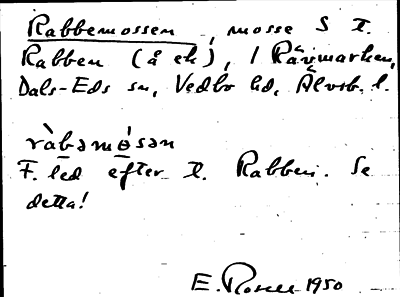 Rabbemossen, mosse S t.
Rabben (å ek), i Rävmarken,
Dals-Eds sn, Vedbo hd, Älvsb. l.
ràbəmo̊sən
F. led efter t. Rabben. Se
detta!
E. Rosell 1950